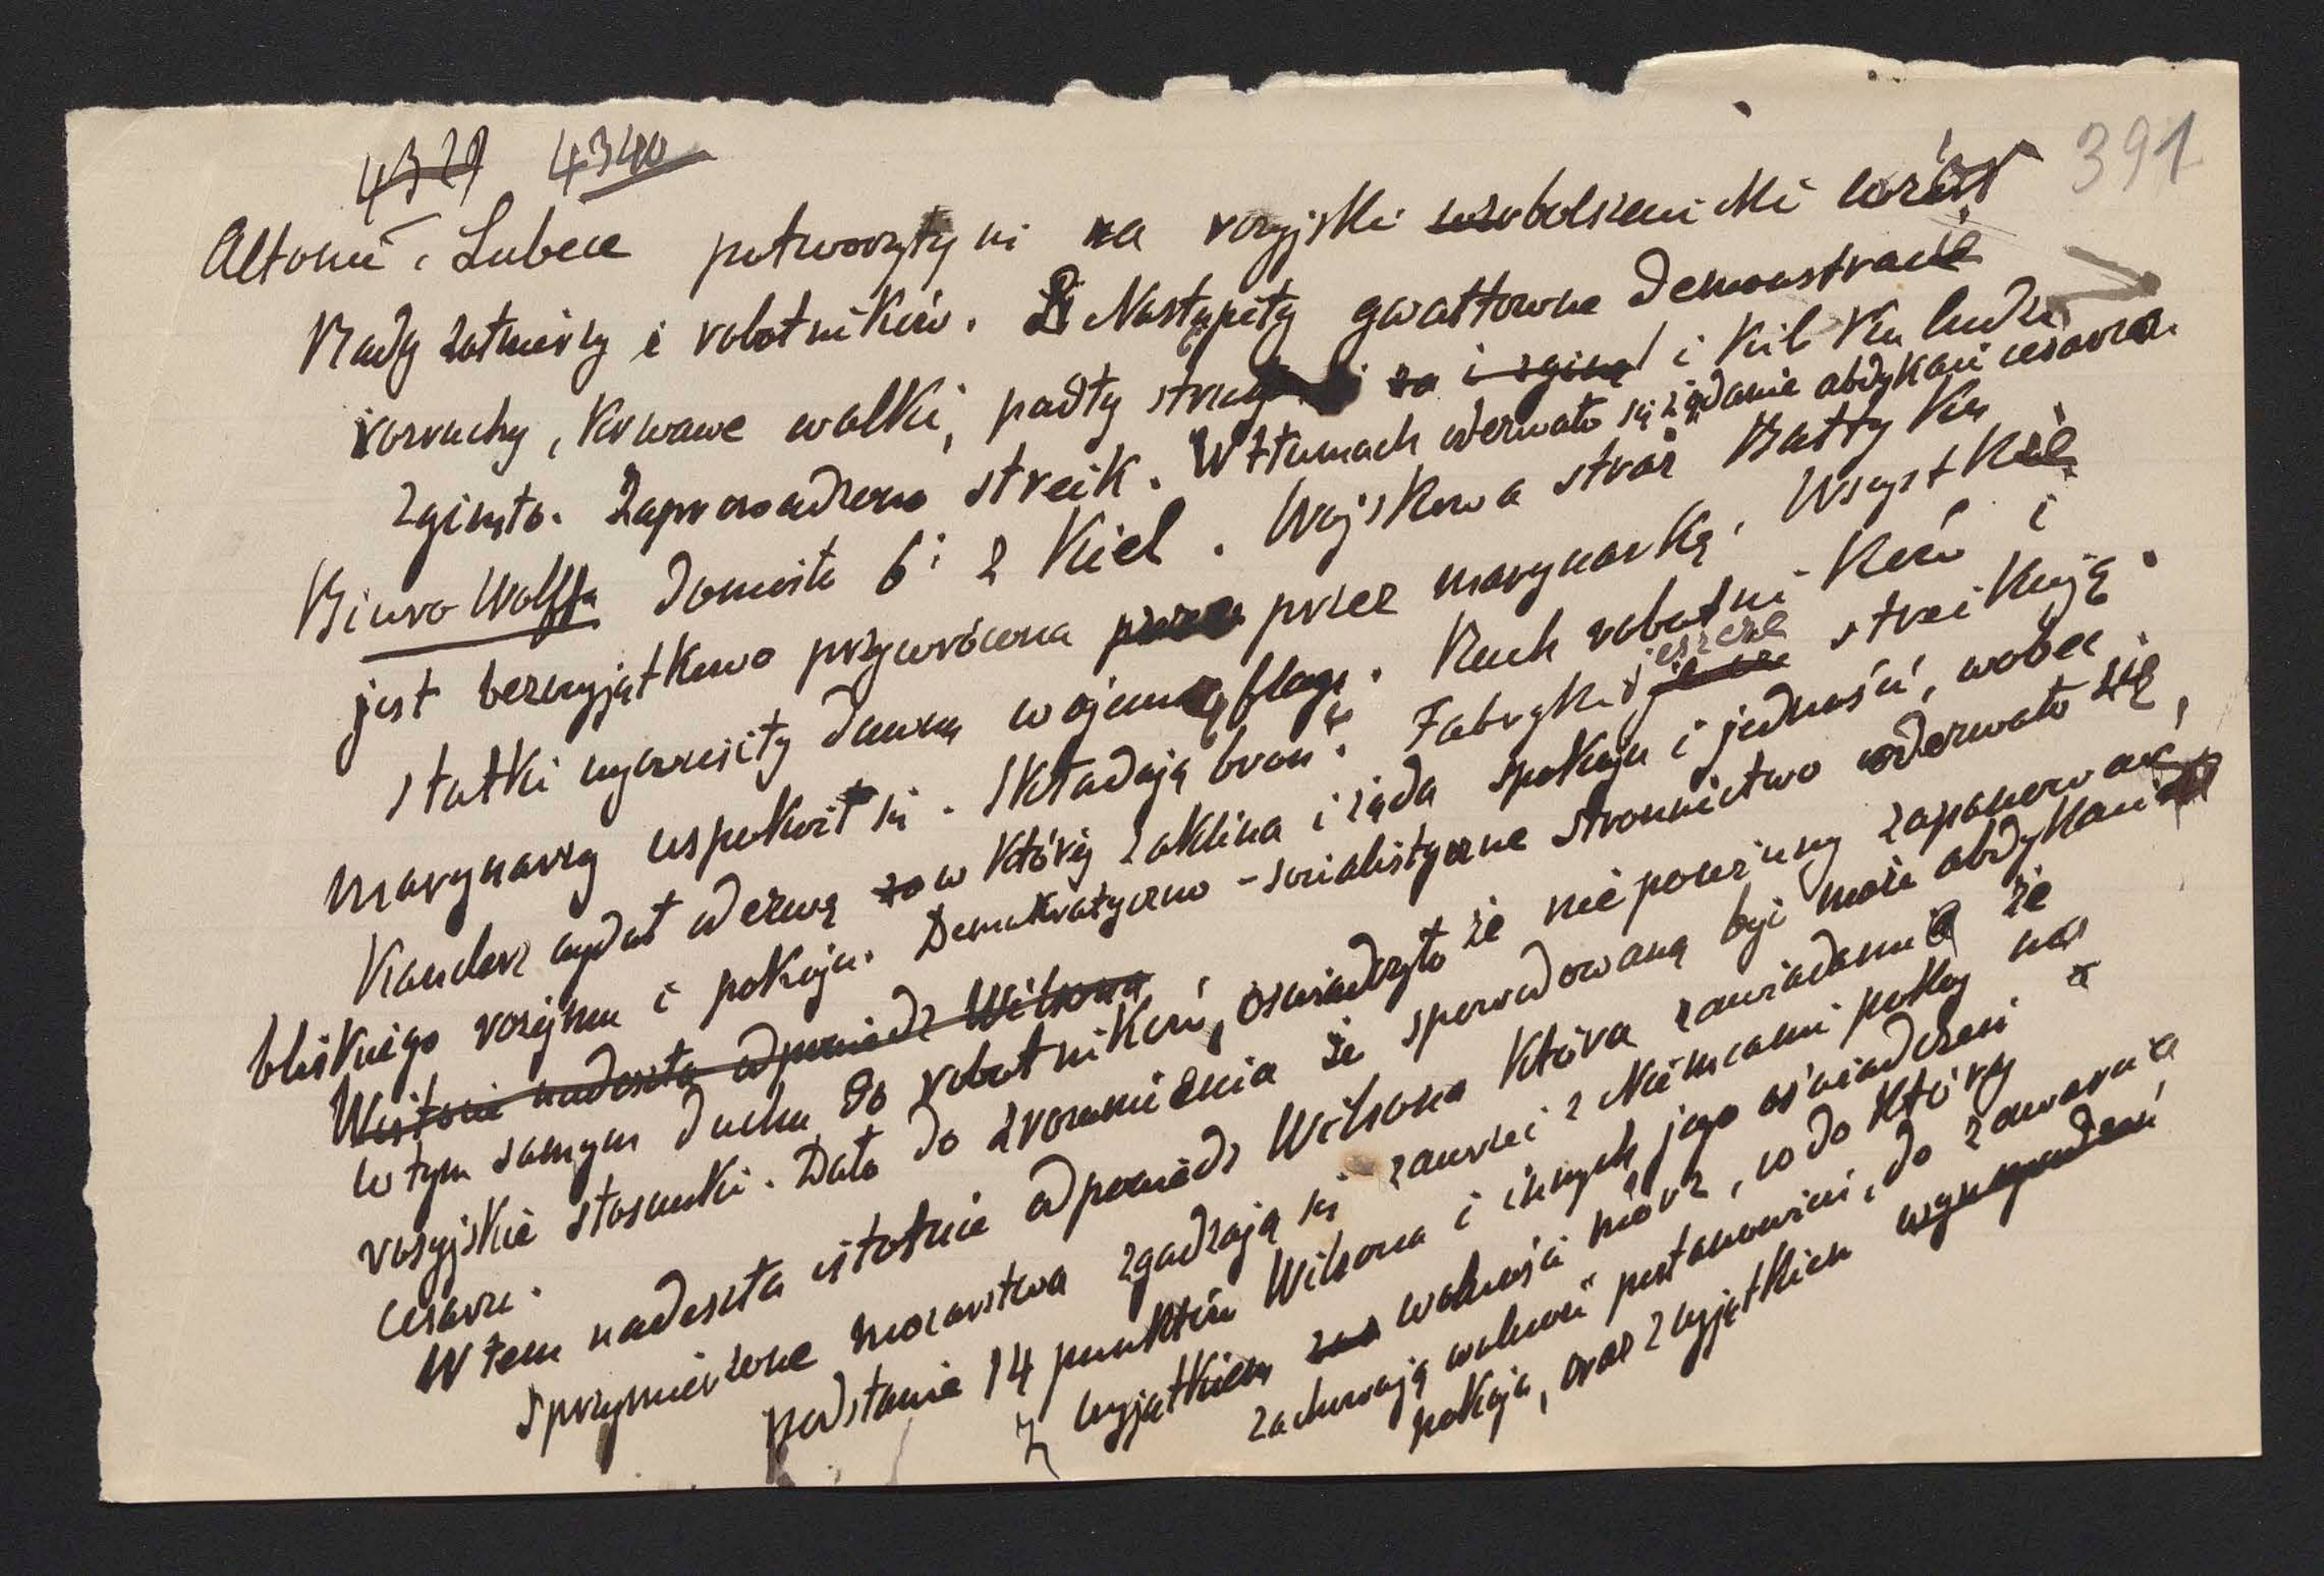 4329 4340
391
Altonie i Lubece potworzyły się na rosyjski bolszewicki wzór
Rady żołnierzy i robotników. Nastąpiły gwałtowne demonstracie
rozruchy, krwawe walki, padły strzały i kilku ludzi
zginęło. Zaprowadzono streik. W tłumach oderwało się żądanie abdykacii cesarza.
Biuro Wolffa donosiło 6: z Kiel. Wojskowa straż Bałtyku
jest bezwyjątkowo przywrócona przez marynarkę. Wszystkie
statki wywiesiły dawną wojenną flagę. Ruch robotników i
marynarzy uspokoił się. Składają broń. Fabryki jeszcze streikują.
Kanclerz wydał odezwę w której zaklina i żąda spokoju i jedności, wobec
bliskiego rozejmu i pokoju. Demokratyczno-socialistyczne stronnictwo oderwało się,
Wistocie nadeszła odpowiedz Wilsona
w tym samym duchu do robotników, oswiadczyło że nie powinny zapanować
rosyjskie stosunki. Dało do zrozumienia że spowodowaną być może abdykacia
cesarza.
W tem nadeszła istotnie odpowiedz Wilsona która zawiadamia że
sprzymierzone mocarstwa zgadzają się zawrzeć z Niemcami pokój na
podstawie 14 punktów Wilsona i innych jego oświadczeń z
wyjątkiem wolności mórz, co do której
zachowują wolność postanowień, do zawarcia
pokoju, oraz z wyjątkiem wynagrodzeń